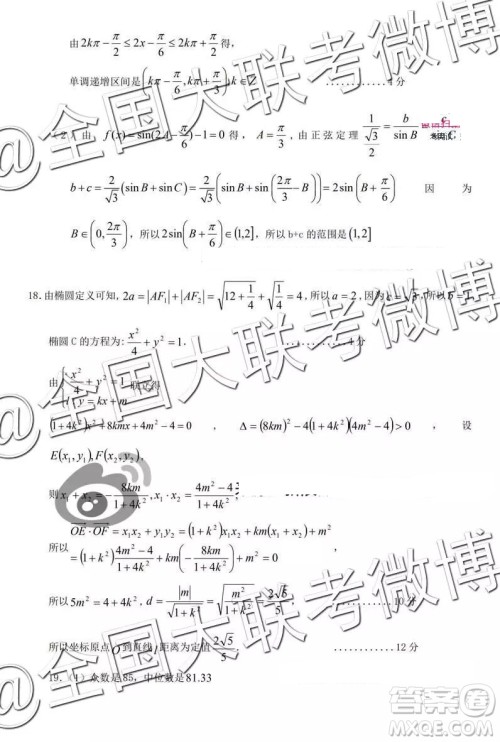 由2kπ-π/2≤2x-π/6≤2kπ+π/2得,
单调递增区间是(kπ-π/6,kπ+π/3),k∈Z …………4分
(2)由 f(x)=sin(2A-π/6)-1=0得, A=π/3, 由正弦定理 1/(√3/2)=b/sin B=c/sin C,
b+c=2/√3(sin B+sin C)=2/√3(sin B+sin(2π/3-B))=2sin(B+π/6) 因为
B∈(0,2π/3), 所以2sin(B+π/6)∈(1,2], 所以 b+c 的范围是(1,2]
18.由椭圆定义可知, 2a=|AF₁|+|AF₂|=√(12+1/4)+√(1/4)=4, 所以a=2, 因为c=√3, 所以b=1,
椭圆 C 的方程为:x²/4+y²=1. …………4分
由{x²/4+y²=1 联立得
l:y=kx+m
(1+4k²)x²+8kmx+4m²-4=0 , Δ=(8km)²-4(1+4k²)(4m²-4)>0 , 设
E(x₁,y₁),F(x₂,y₂),
则x₁+x₂=-8km/(1+4k²), x₁·x₂=(4m²-4)/(1+4k²)
OE·OF=x₁x₂+y₁y₂=(1+k²)x₁x₂+km(x₁+x₂)+m²
所以=(1+k²)(4m²-4)/(1+4k²)+km(-8km/(1+4k²))+m²=0
所以5m²=4+4k², d=|m|/√(1+k²)=√(m²/(1+k²))=√(4/5)=2√5/5 …………10分
所以坐标原点O到直线l距离为定值2√5/5. …………12分
19.(1)众数是85,中位数是81.33
@全国大联考微博
@全国大联考微博
@全国大联考微博
答案圈
MXQE.COM